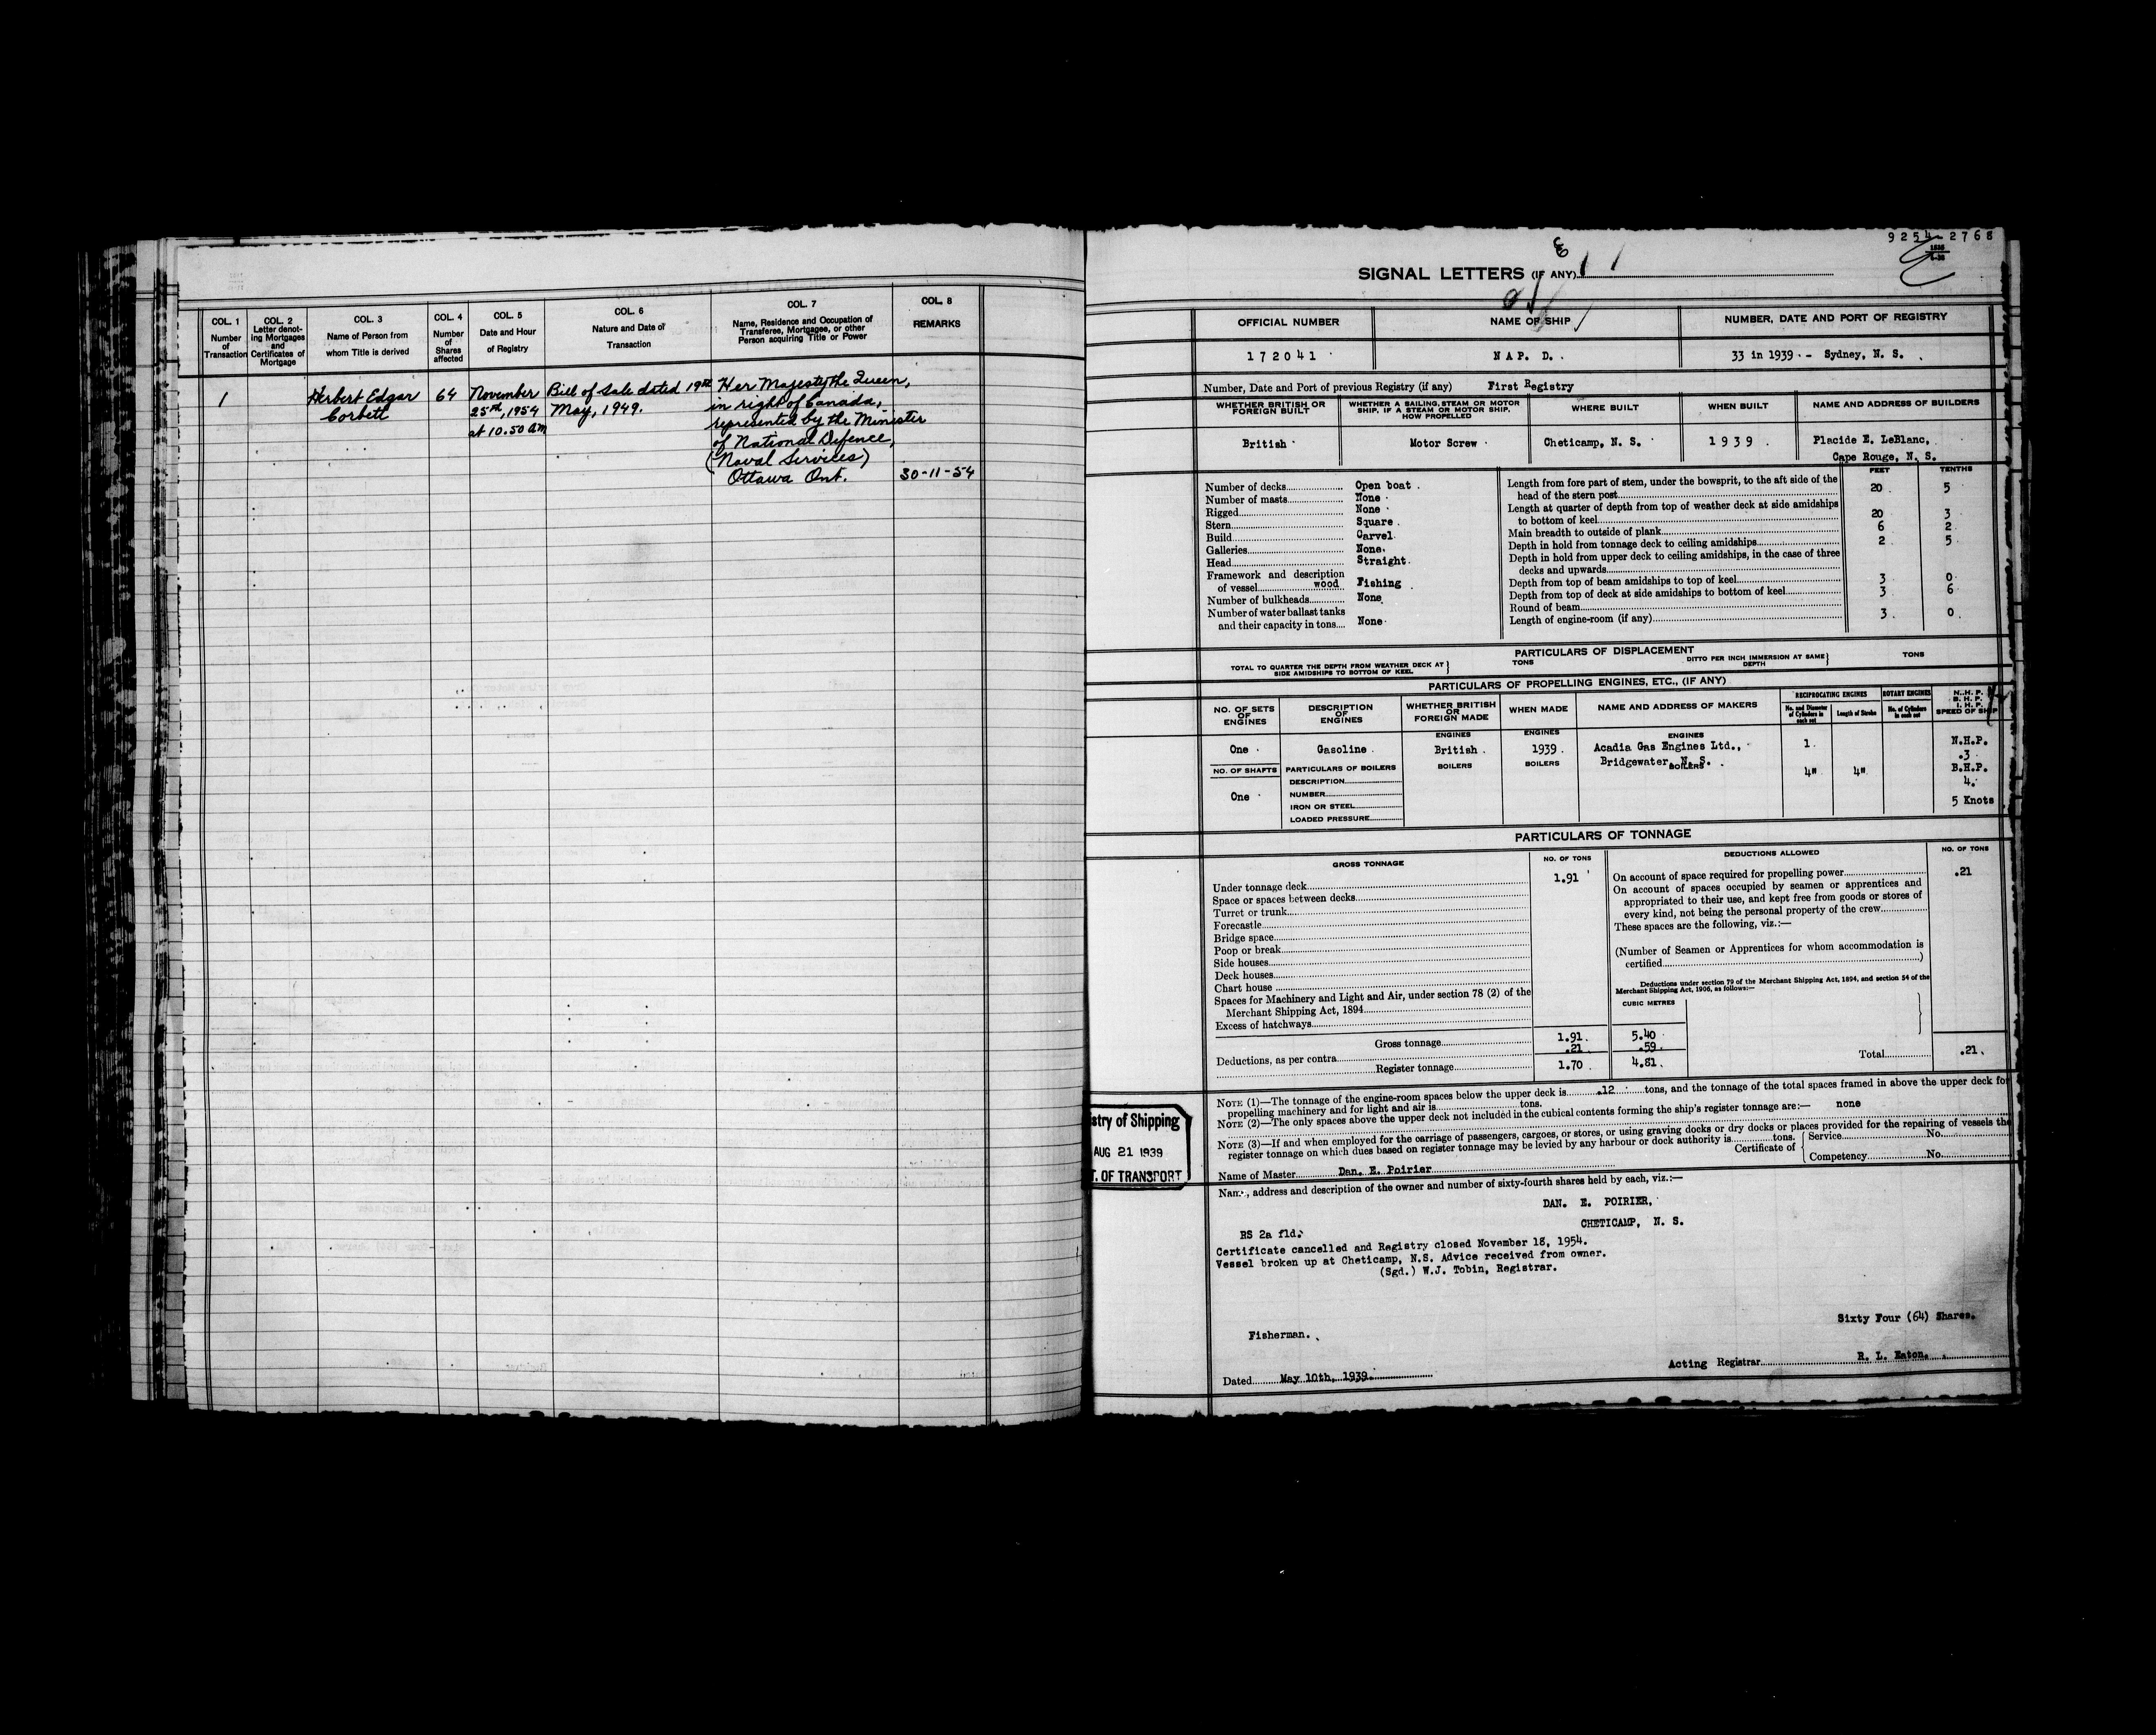 COL. 1
Number
of
Transaction
COL. 2
Letter denot-
ing Mortgages
and
Certificates of
Mortgage
COL. 3
Name of Person from
whom Title is derived
COL. 4
Number
of
Shares
affected
COL. 5
Date and Hour
of Registry
COL. 6
Nature and Date of
Transaction
COL. 7
Name, Residence and Occupation of
Transferee, Mortgagee, or other
Person acquiring Title or Power
COL. 8
REMARKS
1
Herbert Edgar
Corbett
64
November
25th, 1954
at 10.50 am
Bill of Sale dated 19th
May, 1949.
Her Majesty the Queen,
in right of Canada,
represented by the Minister
of National Defence,
(Naval Services)
Ottawa Ont.
30-11-54
9254-2768
SIGNAL LETTERS (IF ANY)
OFFICIAL NUMBER
NAME OF SHIP
NUMBER, DATE AND PORT OF REGISTRY
172041
NAP. D.
33 in 1939 - Sydney, N. S.
Number, Date and Port of previous Registry (if any) First Registry
WHETHER BRITISH OR
FOREIGN BUILT
WHETHER A SAILING, STEAM OR MOTOR
SHIP. IF A STEAM OR MOTOR SHIP,
HOW PROPELLED
WHERE BUILT
WHEN BUILT
NAME AND ADDRESS OF BUILDERS
British
Motor Screw
Cheticamp, N. S.
1939
Placide E. LeBlanc,
Cape Rouge, N. S.
Number of decks Open boat
Number of masts None
Rigged None
Stern Square
Build Carvel
Galleries None.
Head Straight
Framework and description
of vessel wood Fishing
Number of bulkheads None
Number of water ballast tanks
and their capacity in tons None
FEET TENTHS
Length from fore part of stem, under the bowsprit, to the aft side of the
head of the stern post 20 5
Length at quarter of depth from top of weather deck at side amidships
to bottom of keel 20 3
Main breadth to outside of plank 6 2
Depth in hold from tonnage deck to ceiling amidships 2 5
Depth in hold from upper deck to ceiling amidships, in the case of three
decks and upwards
Depth from top of beam amidships to top of keel 3 0
Depth from top of deck at side amidships to bottom of keel 3 6
Round of beam
Length of engine-room (if any) 3 0
PARTICULARS OF DISPLACEMENT
TOTAL TO QUARTER THE DEPTH FROM WEATHER DECK AT
SIDE AMIDSHIPS TO BOTTOM OF KEEL
TONS
DITTO PER INCH IMMERSION AT SAME
DEPTH
TONS
PARTICULARS OF PROPELLING ENGINES, ETC., (IF ANY)
NO. OF SETS
OF
ENGINES
DESCRIPTION
OF
ENGINES
WHETHER BRITISH
OR
FOREIGN MADE
WHEN MADE
NAME AND ADDRESS OF MAKERS
RECIPROCATING ENGINES
No. and Diameter
of Cylinders in
each set
Length of Stroke
ROTARY ENGINES
No. of Cylinders
in each set
N.H.P.
B.H.P.
I.H.P.
SPEED OF SHIP
One
Gasoline
ENGINES
British
ENGINES
1939
ENGINES
Acadia Gas Engines Ltd.,
Bridgewater, N. S.
1
4"
4"
N.H.P.
.3
B.H.P.
4.
5 Knots
NO. OF SHAFTS
One
PARTICULARS OF BOILERS
DESCRIPTION
NUMBER
IRON OR STEEL
LOADED PRESSURE
BOILERS
BOILERS
BOILERS
PARTICULARS OF TONNAGE
GROSS TONNAGE
NO. OF TONS
DEDUCTIONS ALLOWED
NO. OF TONS
Under tonnage deck 1.91
Space or spaces between decks
Turret or trunk
Forecastle
Bridge space
Poop or break
Side houses
Deck houses
Chart house
Spaces for Machinery and Light and Air, under section 78 (2) of the
Merchant Shipping Act, 1894
Excess of hatchways
Gross tonnage 1.91 5.40
Deductions, as per contra .21 .59
Register tonnage 1.70 4.81
On account of space required for propelling power .21
On account of spaces occupied by seamen or apprentices and
appropriated to their use, and kept free from goods or stores of
every kind, not being the personal property of the crew
These spaces are the following, viz.:—
(Number of Seamen or Apprentices for whom accommodation is
certified )
Deductions under section 79 of the Merchant Shipping Act, 1894, and section 54 of the
Merchant Shipping Act, 1906, as follows:—
CUBIC METRES
Total .21.
NOTE (1)—The tonnage of the engine-room spaces below the upper deck is .12 tons, and the tonnage of the total spaces framed in above the upper deck for
propelling machinery and for light and air is tons.
NOTE (2)—The only spaces above the upper deck not included in the cubical contents forming the ship's register tonnage are:— none
NOTE (3)—If and when employed for the carriage of passengers, cargoes, or stores, or using graving docks or dry docks or places provided for the repairing of vessels the
register tonnage on which dues based on register tonnage may be levied by any harbour or dock authority is tons.
Certificate of
Service No.
Competency No.
Name of Master Dan. E. Poirier
stry of Shipping
AUG 21 1939
T. OF TRANSPORT
Name, address and description of the owner and number of sixty-fourth shares held by each, viz.:—
DAN. E. POIRIER,
CHETICAMP, N. S.
RS 2a fld.
Certificate cancelled and Registry closed November 18, 1954.
Vessel broken up at Cheticamp, N.S. Advice received from owner.
(Sgd.) W.J. Tobin, Registrar.
Sixty Four (64) Shares.
Fisherman.
Acting Registrar R. L. Eaton.
Dated May 10th, 1939.